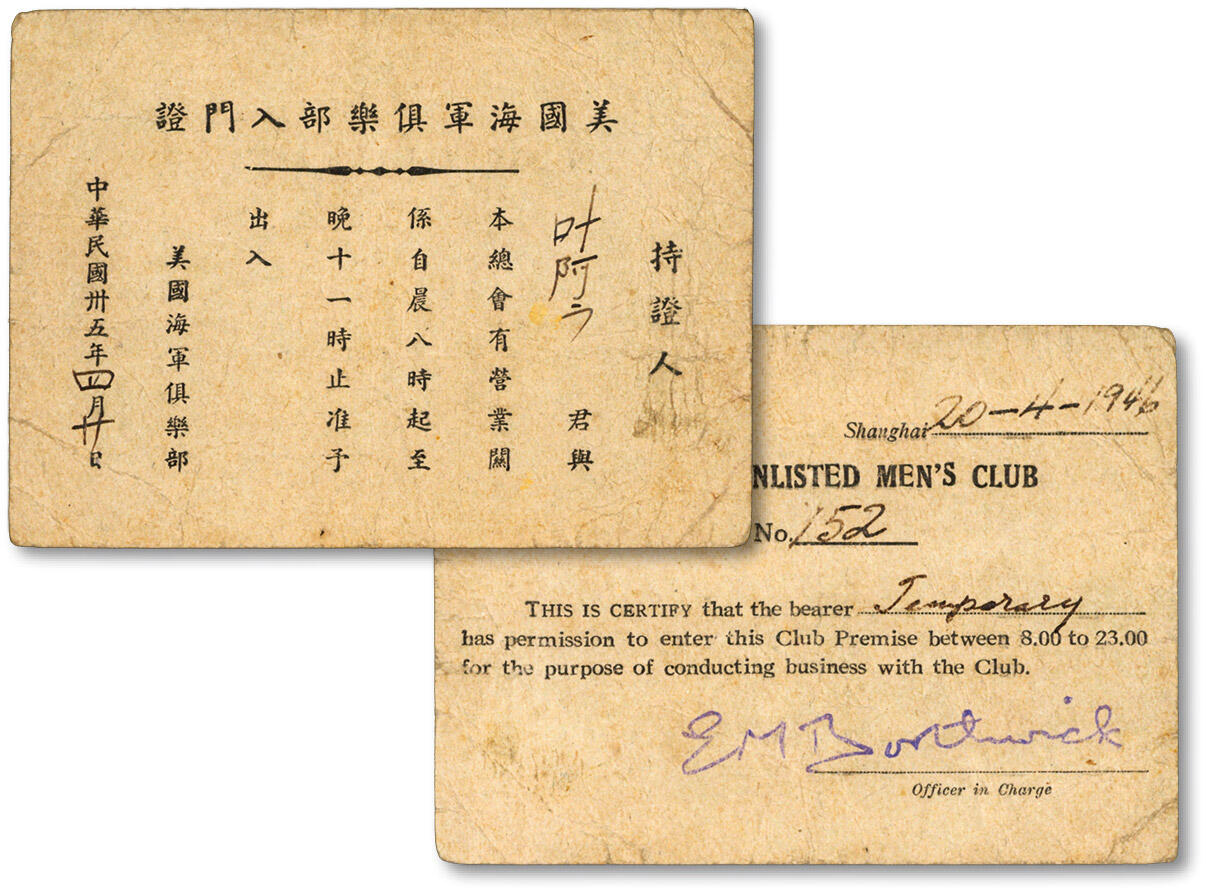 美國海軍俱樂部入門證
持證人
叶阿 君與
本總會有營業關
係自晨八時起至
晚十一時止准予
出入
美國海軍俱樂部
中華民國卅五年四月廿日
Shanghai 20-4-1946
NLISTED MEN'S CLUB
No. 152
THIS IS CERTIFY that the bearer Temporary
has permission to enter this Club Premise between 8.00 to 23.00
for the purpose of conducting business with the Club.
E M Borthwick
Officer in Charge